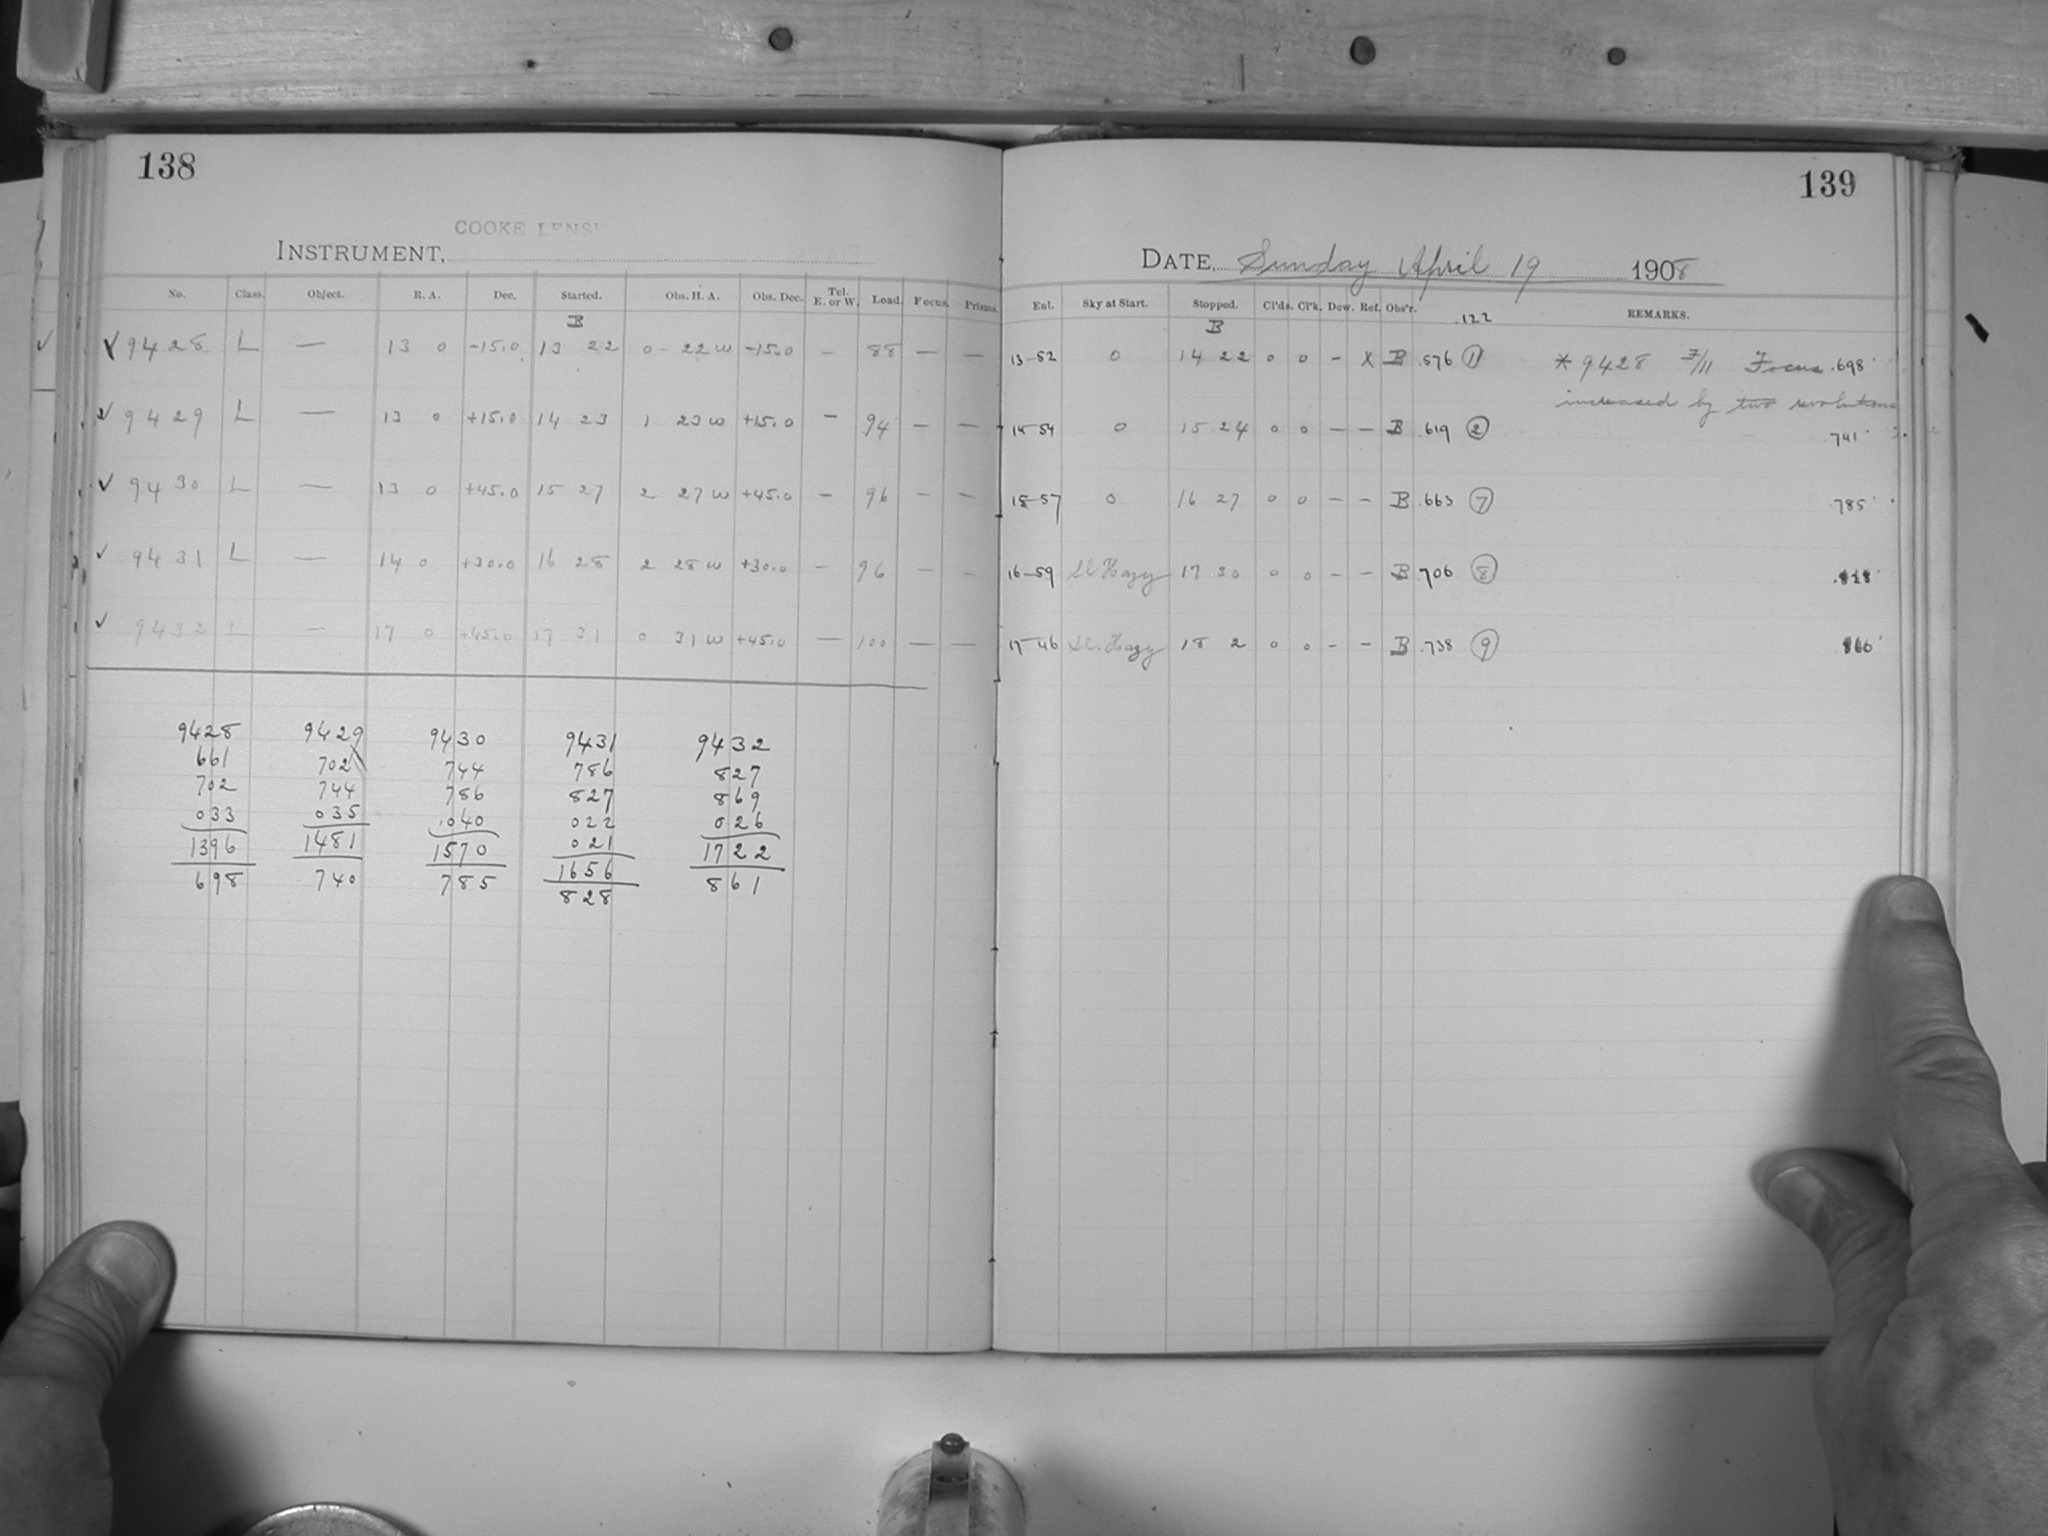 138
COOKE LENSE
INSTRUMENT,
No. Class. Object. R. A. Dec. Started. Obs. H. A. Obs. Dec. Tel. E. or W. Load. Focus. Prisms.
B
✓ 9428 L — 13 0 -15.0 13 22 0 22 W -15.0 — 88 — —
✓ 9429 L — 13 0 +15.0 14 23 1 23 W +15.0 — 94 — —
✓ 9430 L — 13 0 +45.0 15 27 2 27 W +45.0 — 96 — —
✓ 9431 L — 14 0 +30.0 16 28 2 28 W +30.0 — 96 — —
✓ 9432 L — 17 0 +45.0 17 31 0 31 W +45.0 — 100 — —
9428 9429 9430 9431 9432
661 702 744 786 827
702 744 786 827 869
033 035 .040 022 026
1396 1481 1570 021 1722
698 740 785 1656 861
828
139
DATE, Sunday April 19 1908
Enl. Sky at Start. Stopped. Cl'ds. Cl'k. Dew. Ref. Obs'r. .122 REMARKS.
B
13-52 0 14 22 0 0 - X B .576 ① * 9428 F/11 Focus .698
increased by two revolutions
14-54 0 15 24 0 0 — — B .619 ② .741
15-57 0 16 27 0 0 - - B .663 ⑦ .785
16-59 Sl. Hazy 17 30 0 0 - - B .706 ⑧ .828
17-46 Sl. Hazy 18 2 0 0 - - B .738 ⑨